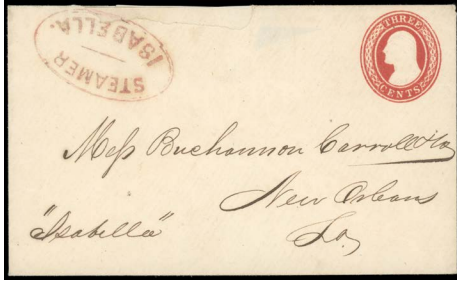 STEAMER
ISABELLA.
THREE
CENTS
Mess Buchannon Carroll & Co
New Orleans
"Isabella"
La